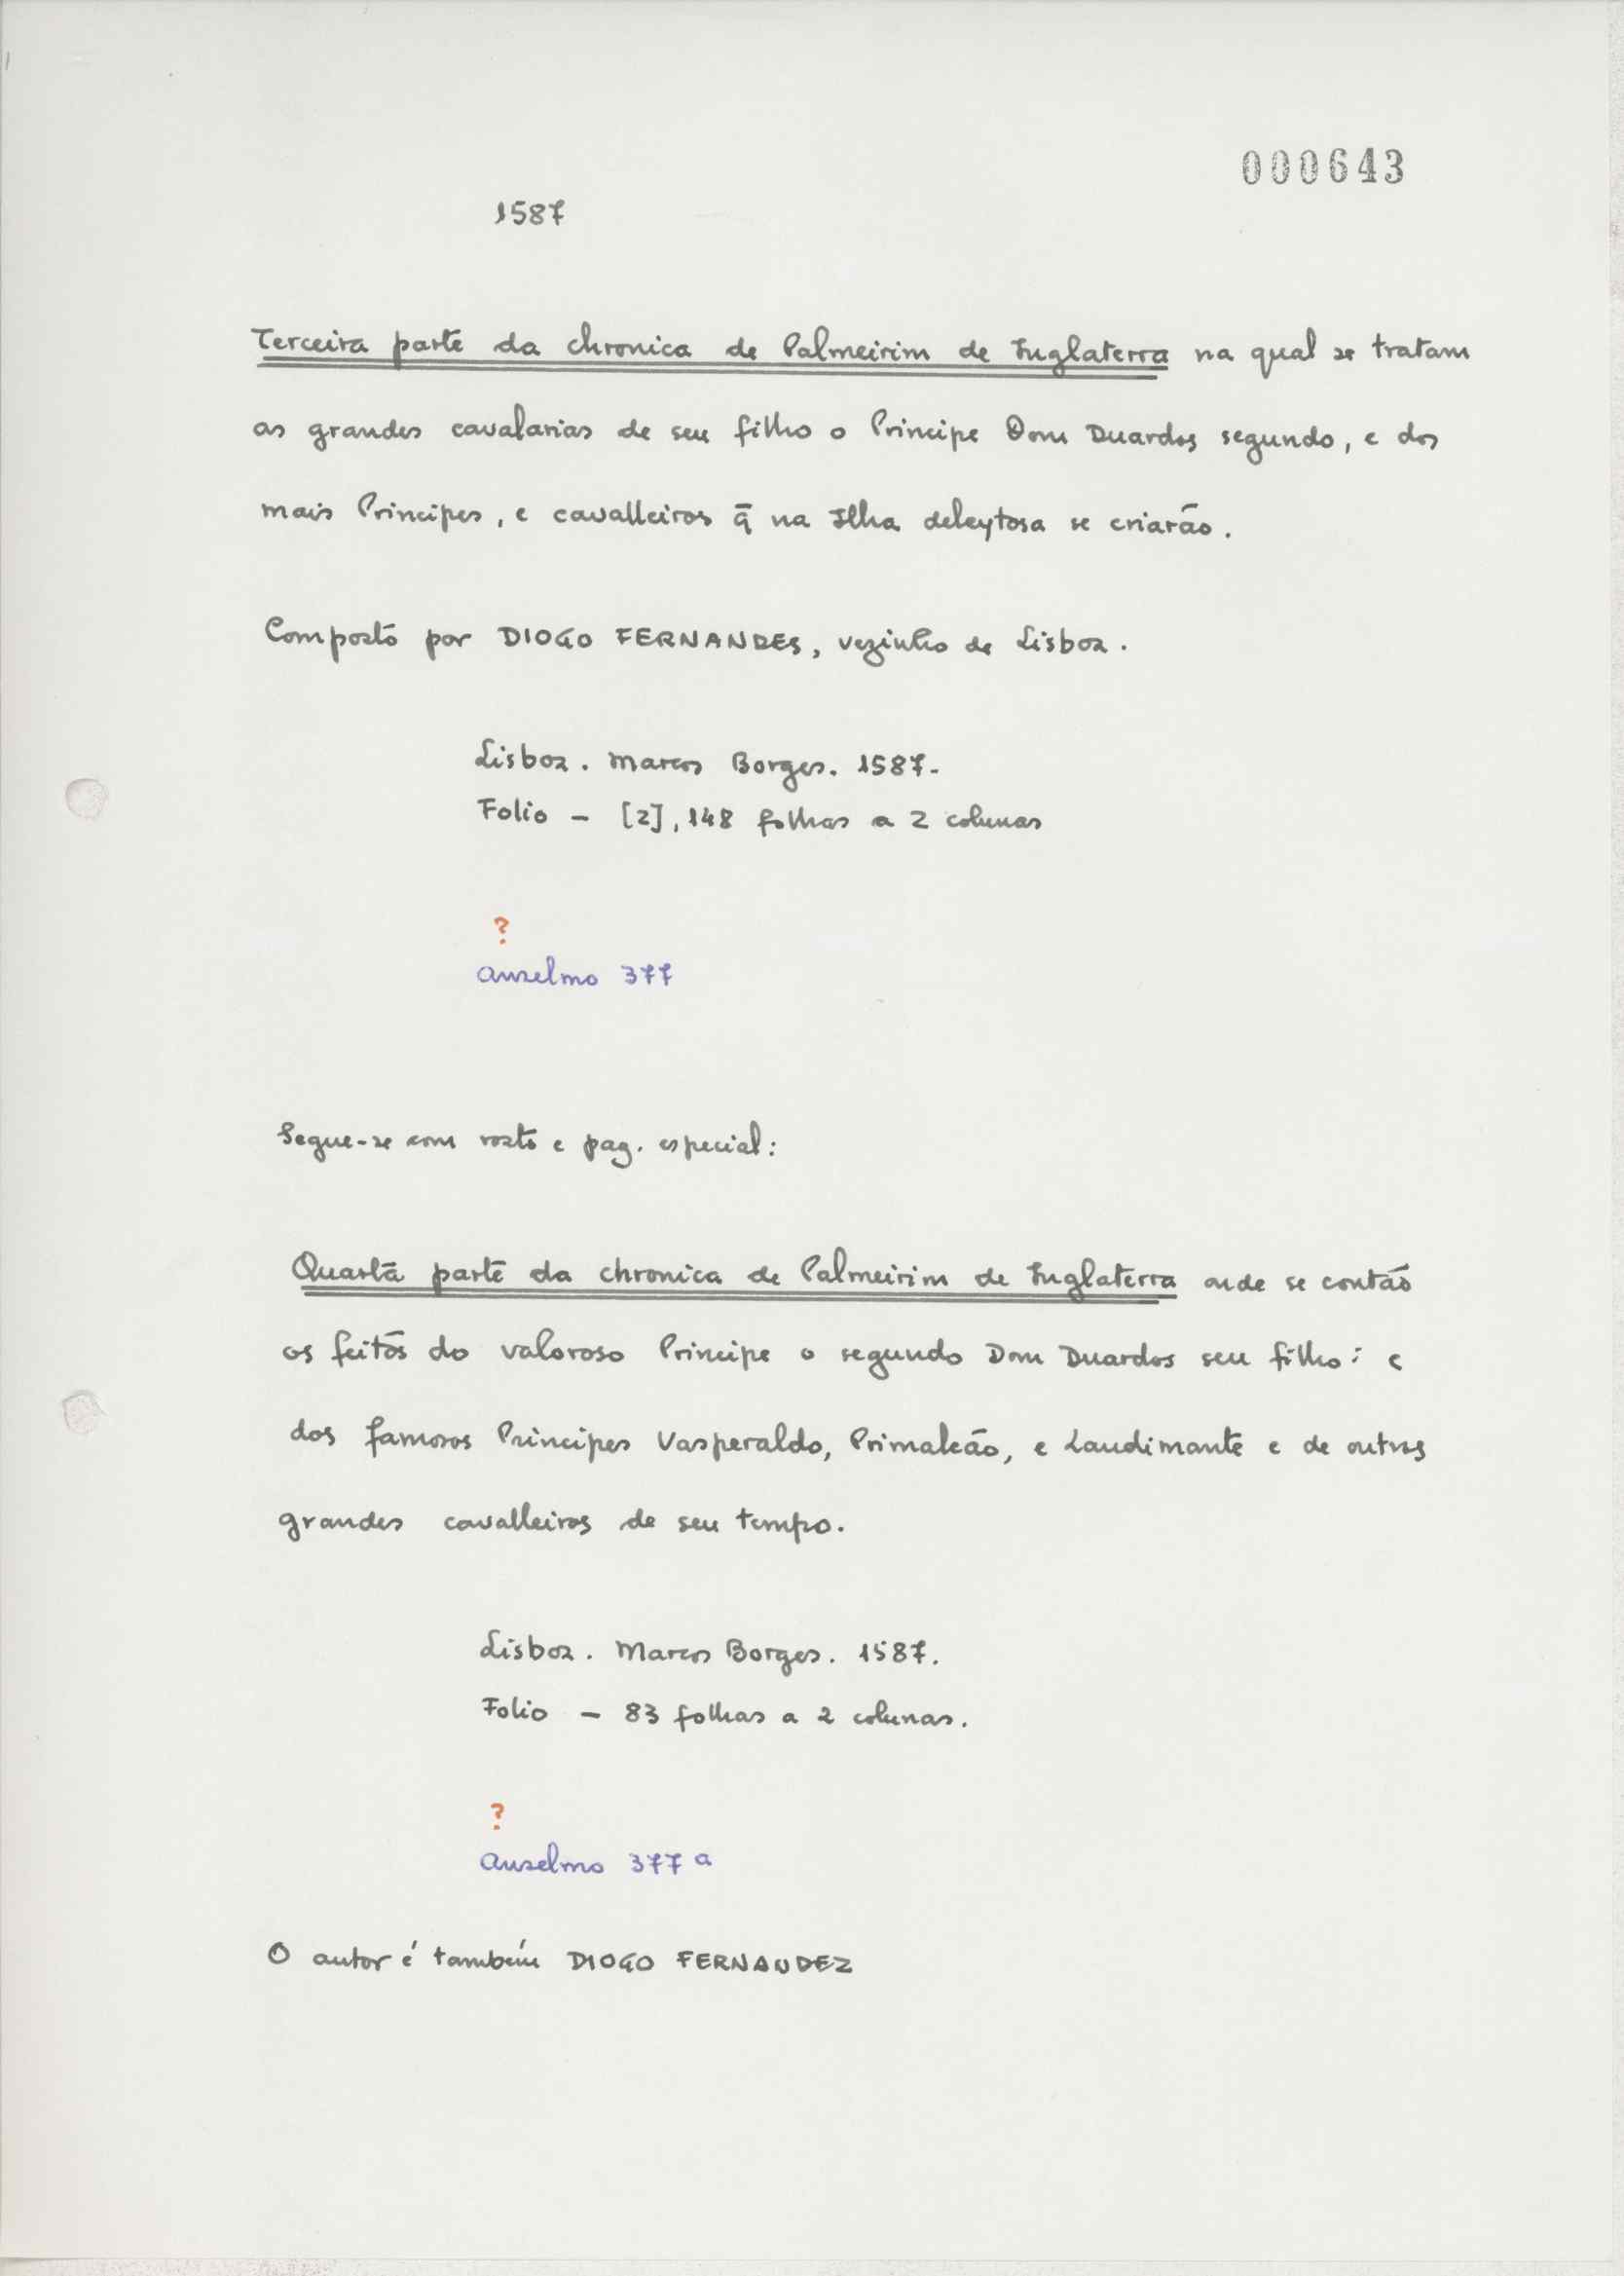 000643
1587
Terceira parte da chronica de Palmeirim de Inglaterra na qual se tratam
as grandes cavalarias de seu filho o Principe Dom Duardos segundo, e dos
mais Principes, e cavalleiros q̄ na Ilha deleytosa se criarão.
Composto por DIOGO FERNANDES, vezinho de Lisboa.
Lisboa. Marcos Borges. 1587.
Folio - [2], 148 folhas a 2 colunas
?
Anselmo 377
Segue-se com rosto e pag. especial:
Quarta parte da chronica de Palmeirim de Inglaterra onde se contão
os feitos do valoroso Principe o segundo Dom Duardos seu filho: e
dos famosos Principes Vasperaldo, Primaleão, e Laudimante e de outros
grandes cavalleiros de seu tempo.
Lisboa. Marcos Borges. 1587.
Folio - 83 folhas a 2 colunas.
?
Anselmo 377 a
O autor é também DIOGO FERNANDEZ